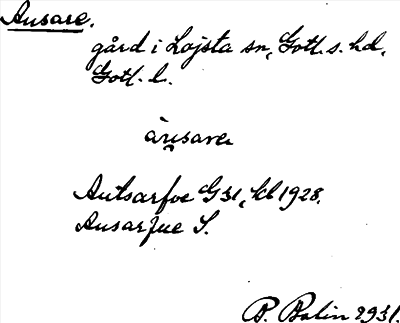 Ausare.
gård i Lojsta sn, Gotl. s. hd,
Gotl. l.
Autsarfve G 31, kl 1928.
Ausarfue S.
P. Bolin 1931.